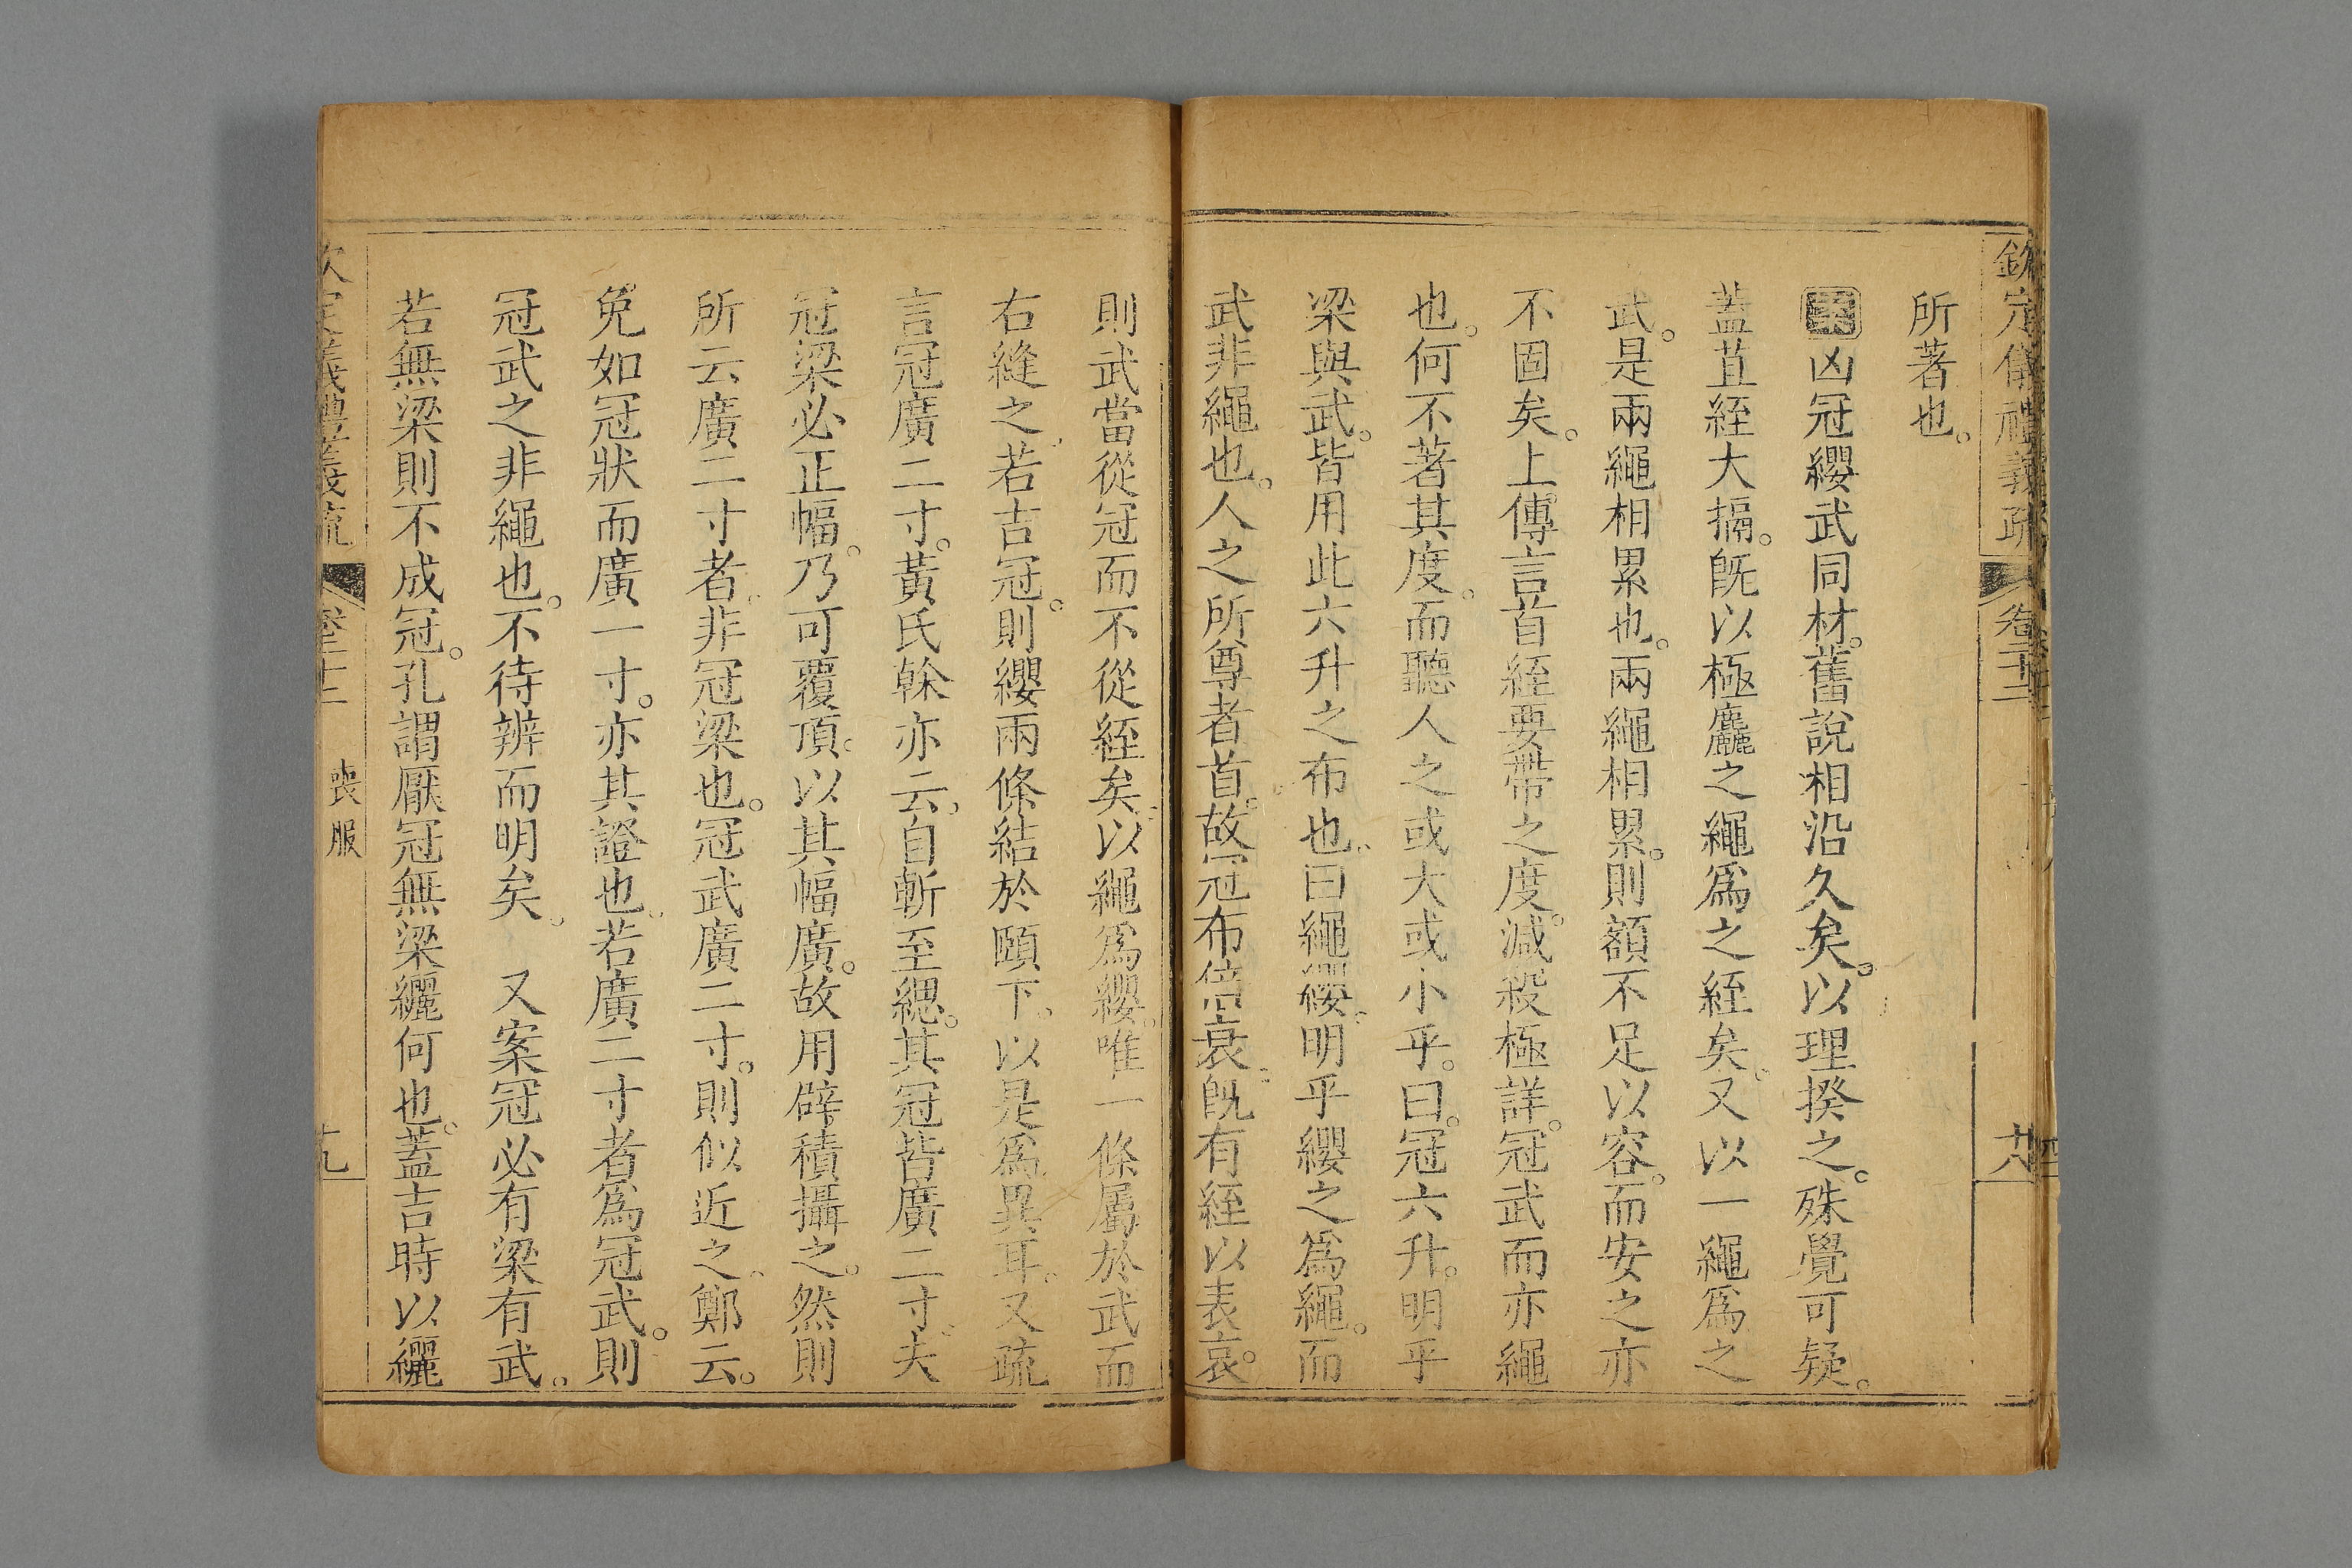 欽定儀禮義疏 卷二十二 廿八
所著也。
案凶冠纓武同材。舊說相沿久矣。以理揆之。殊覺可疑。
蓋苴絰大搹。旣以極麤之繩爲之絰矣。又以一繩爲之
武。是兩繩相累也。兩繩相累。則額不足以容。而安之亦
不固矣。上傳言首絰要帶之度。減殺極詳。冠武而亦繩
也。何不著其度。而聽人之或大或小乎。曰。冠六升。明乎
梁與武。皆用此六升之布也。曰繩纓。明乎纓之爲繩。而
武非繩也。人之所尊者首。故冠布倍衰。旣有絰以表哀。
則武當從冠而不從絰矣。以繩爲纓。唯一條屬於武而
右縫之。若吉冠。則纓兩條結於頤下。以是爲異耳。又疏
言冠廣二寸。黃氏榦亦云。自斬至緦。其冠皆廣二寸。夫
冠梁必正幅。乃可覆頂。以其幅廣。故用辟積攝之。然則
所云廣二寸者。非冠梁也。冠武廣二寸。則似近之。鄭云。
免如冠狀而廣一寸。亦其證也。若廣二寸者爲冠武。則
冠武之非繩也。不待辨而明矣。 又案冠必有梁有武。
若無梁則不成冠。孔謂厭冠無梁纚何也。蓋吉時以纚
欽定儀禮義疏 卷二十二 喪服 廿九